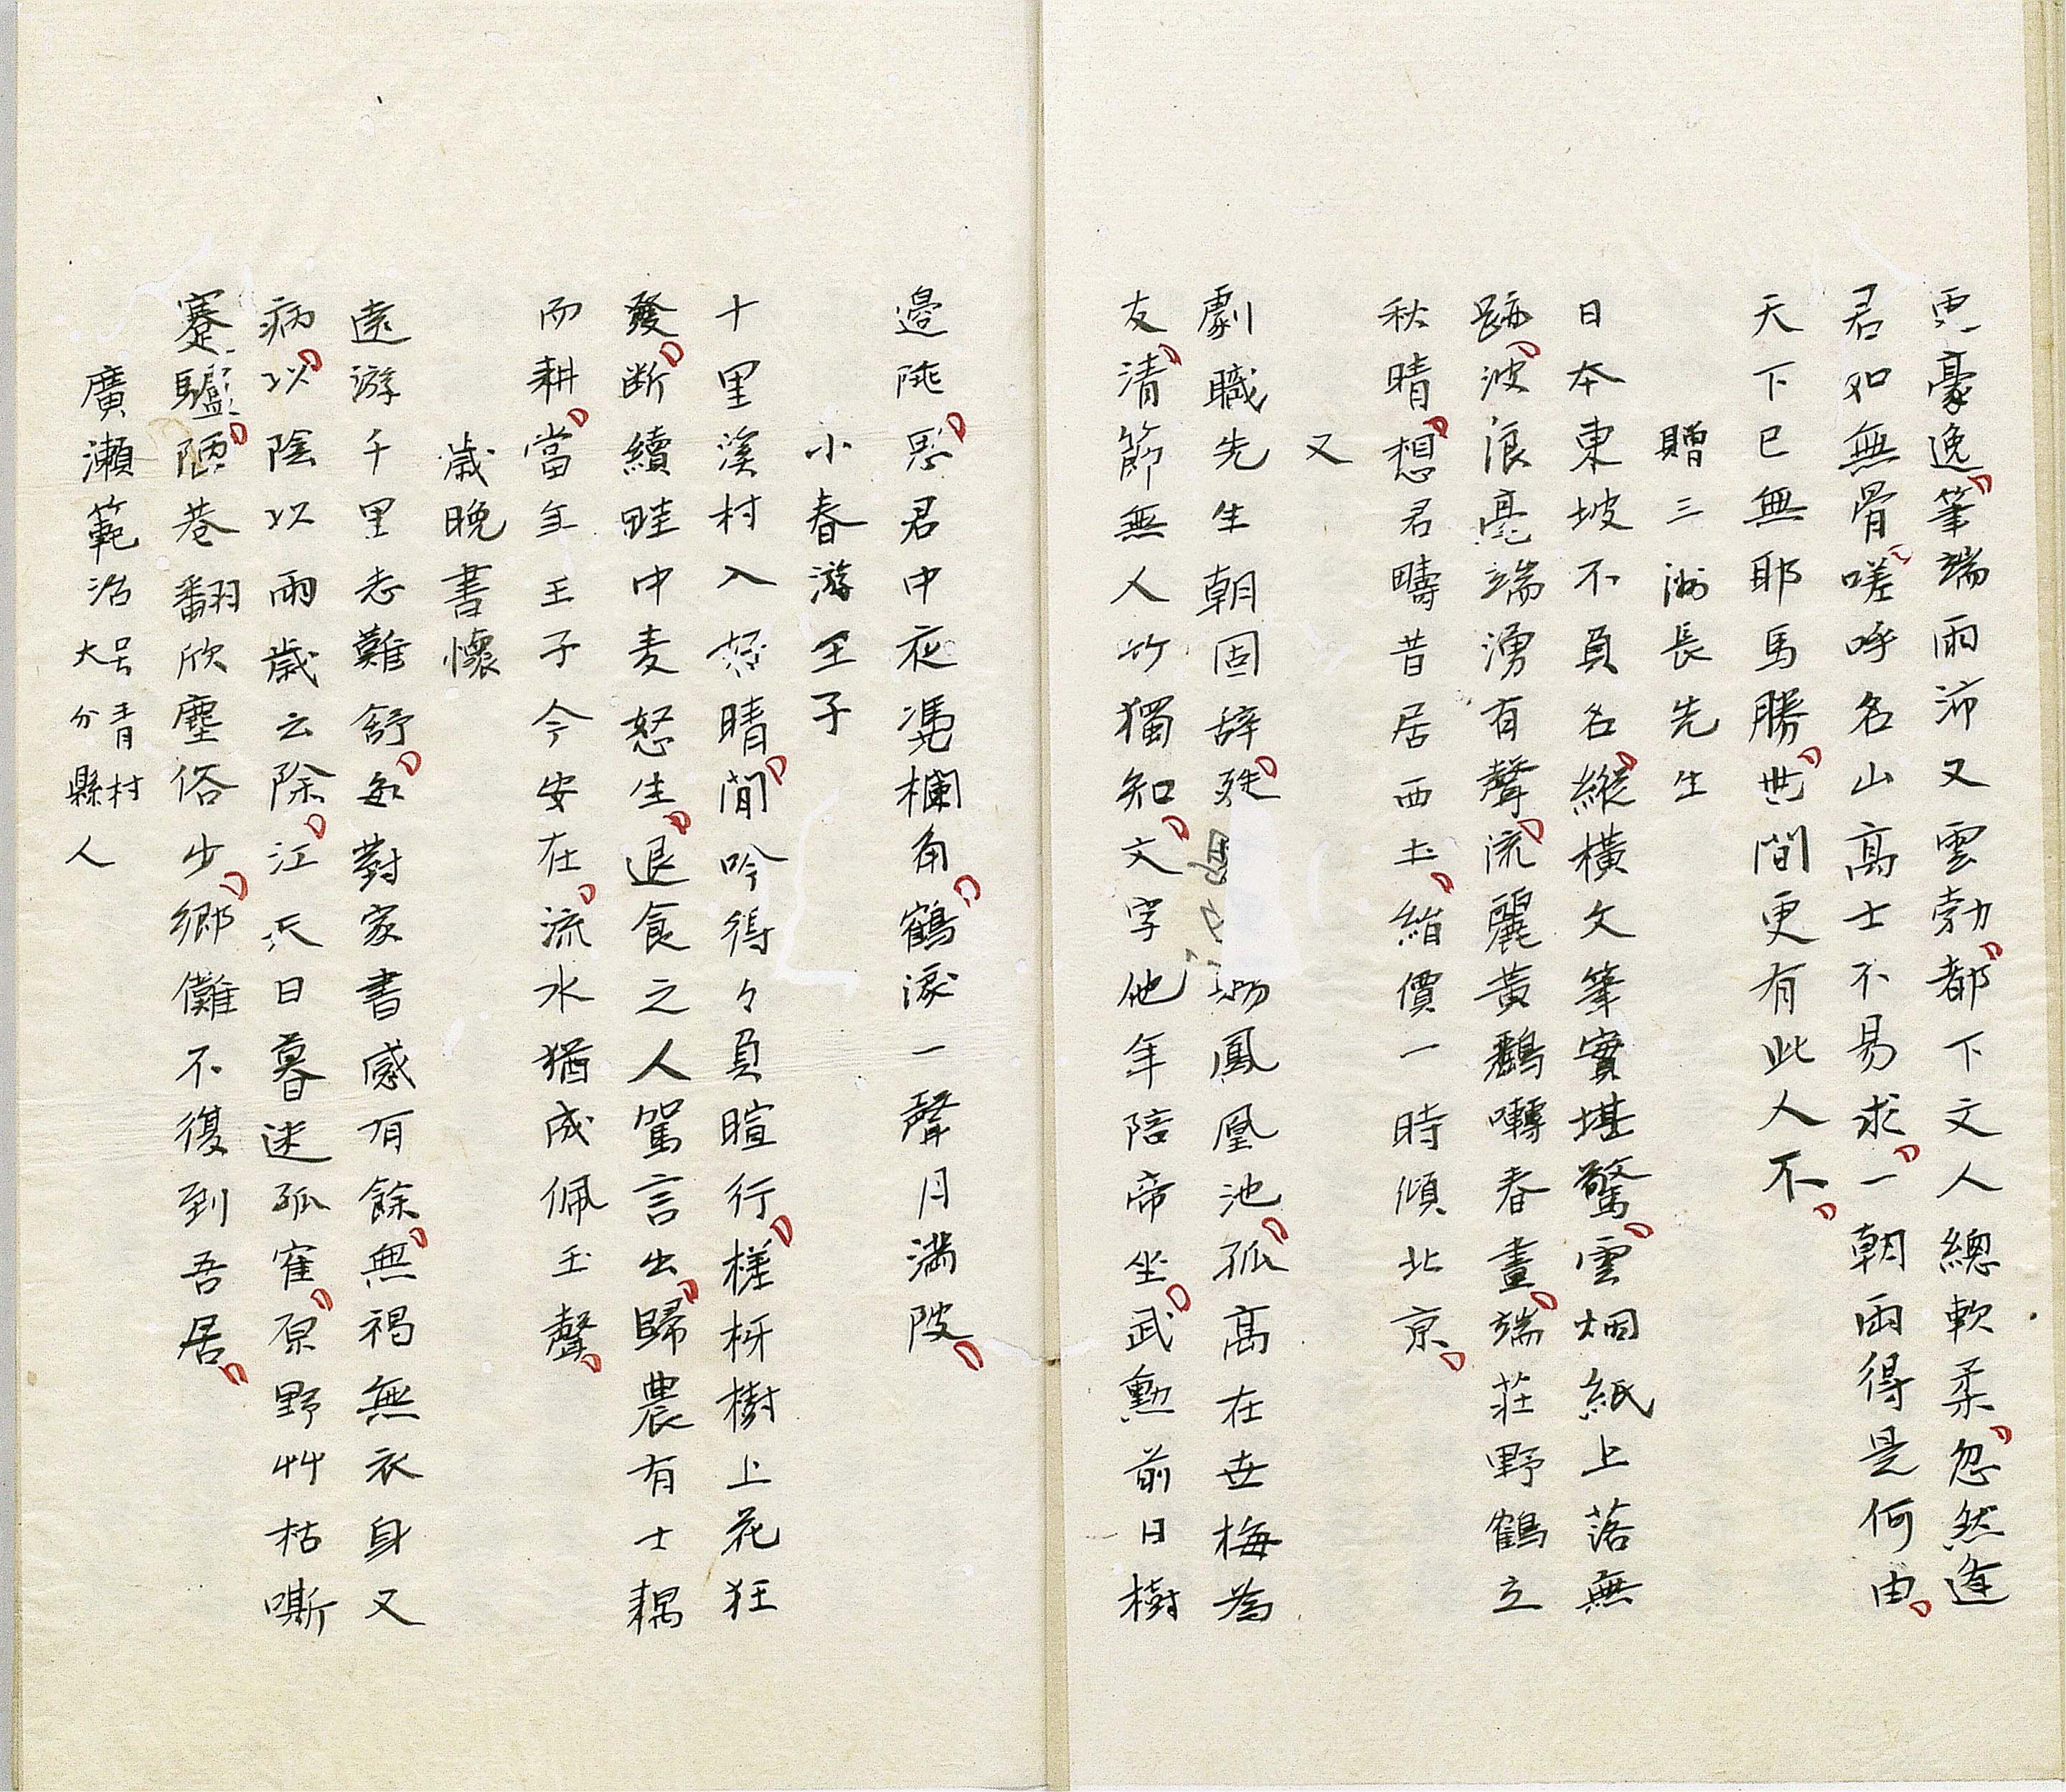 更豪逸筆端雨沛又雲勃都下文人總軟柔忽然逢
君如無骨嗟呼名山高士不易求一朝雨得是何由
天下已無耶馬勝世間更有此人不
贈三洲長先生
日本東坡不負名縱橫文筆實堪驚雲烟紙上落無
跡波浪毫端湧有聲流麗黃鸝囀春晝端莊野鶴立
秋晴想君疇昔居西土紙價一時傾北京
又
劇職先生朝固辞 鳳凰池孤高在世梅為
友清節無人竹獨知文字他年陪帝坐武勲前日樹
邊陲思君中夜凭欄角鶴淚一聲月滿陂
小春游王子
十里溪村入 晴閒吟得々負暄行槎枒樹上花狂
發断續畦中麦怒生退食之人駕言出歸農有士耦
而耕當年王子今安在流水猶成佩玉聲
歲晩書懷
遠游千里志難舒每對家書感有餘無褐無衣身又
病以陰以雨歲云除江天日暮迷孤寉原野艸枯嘶
蹇驢陋巷翻欣塵俗少鄉儺不復到吾居
廣瀬範治 号青村
大分縣人